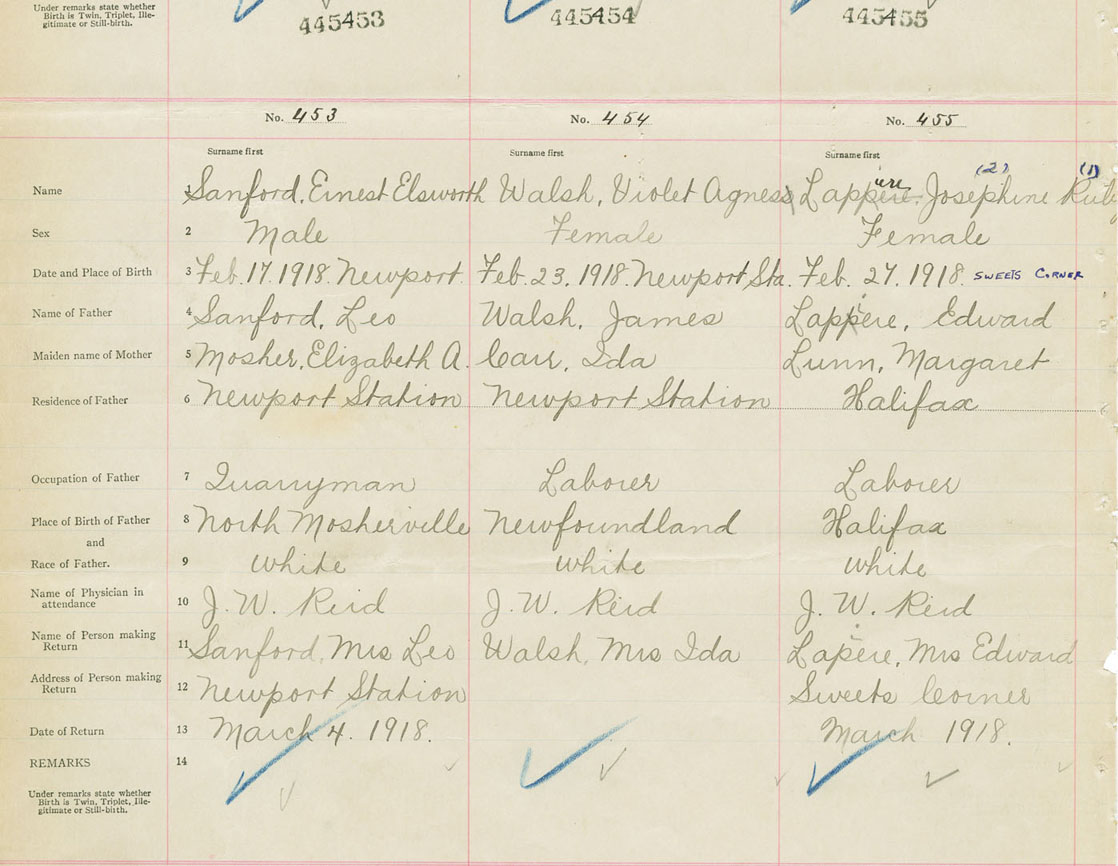 Under remarks state whether
Birth is Twin, Triplet, Ille-
gitimate or Still-birth.
445453 445454 445455
No. 453 No. 454 No. 455
Surname first Surname first Surname first
(2) (1)
Name Sanford, Ernest Elsworth Walsh, Violet Agness Lappere, Josephine Ruby
Sex 2 Male Female Female
Date and Place of Birth 3 Feb. 17. 1918. Newport. Feb. 23, 1918. Newport Sta. Feb. 27, 1918. SWEETS CORNER
Name of Father 4 Sanford, Leo Walsh, James Lappere, Edward
Maiden name of Mother 5 Mosher, Elizabeth A. Carr, Ida Lunn, Margaret
Residence of Father 6 Newport Station Newport Station Halifax
Occupation of Father 7 Quarryman Laborer Laborer
Place of Birth of Father 8 North Mosherville Newfoundland Halifax
and
Race of Father. 9 White White White
Name of Physician in
attendance 10 J. W. Reid J. W. Reid J. W. Reid
Name of Person making
Return 11 Sanford, Mrs Leo Walsh, Mrs Ida Lapere, Mrs Edward
Address of Person making
Return 12 Newport Station Sweets Corner
Date of Return 13 March 4. 1918. March 1918.
REMARKS 14
Under remarks state whether
Birth is Twin, Triplet, Ille-
gitimate or Still-birth.